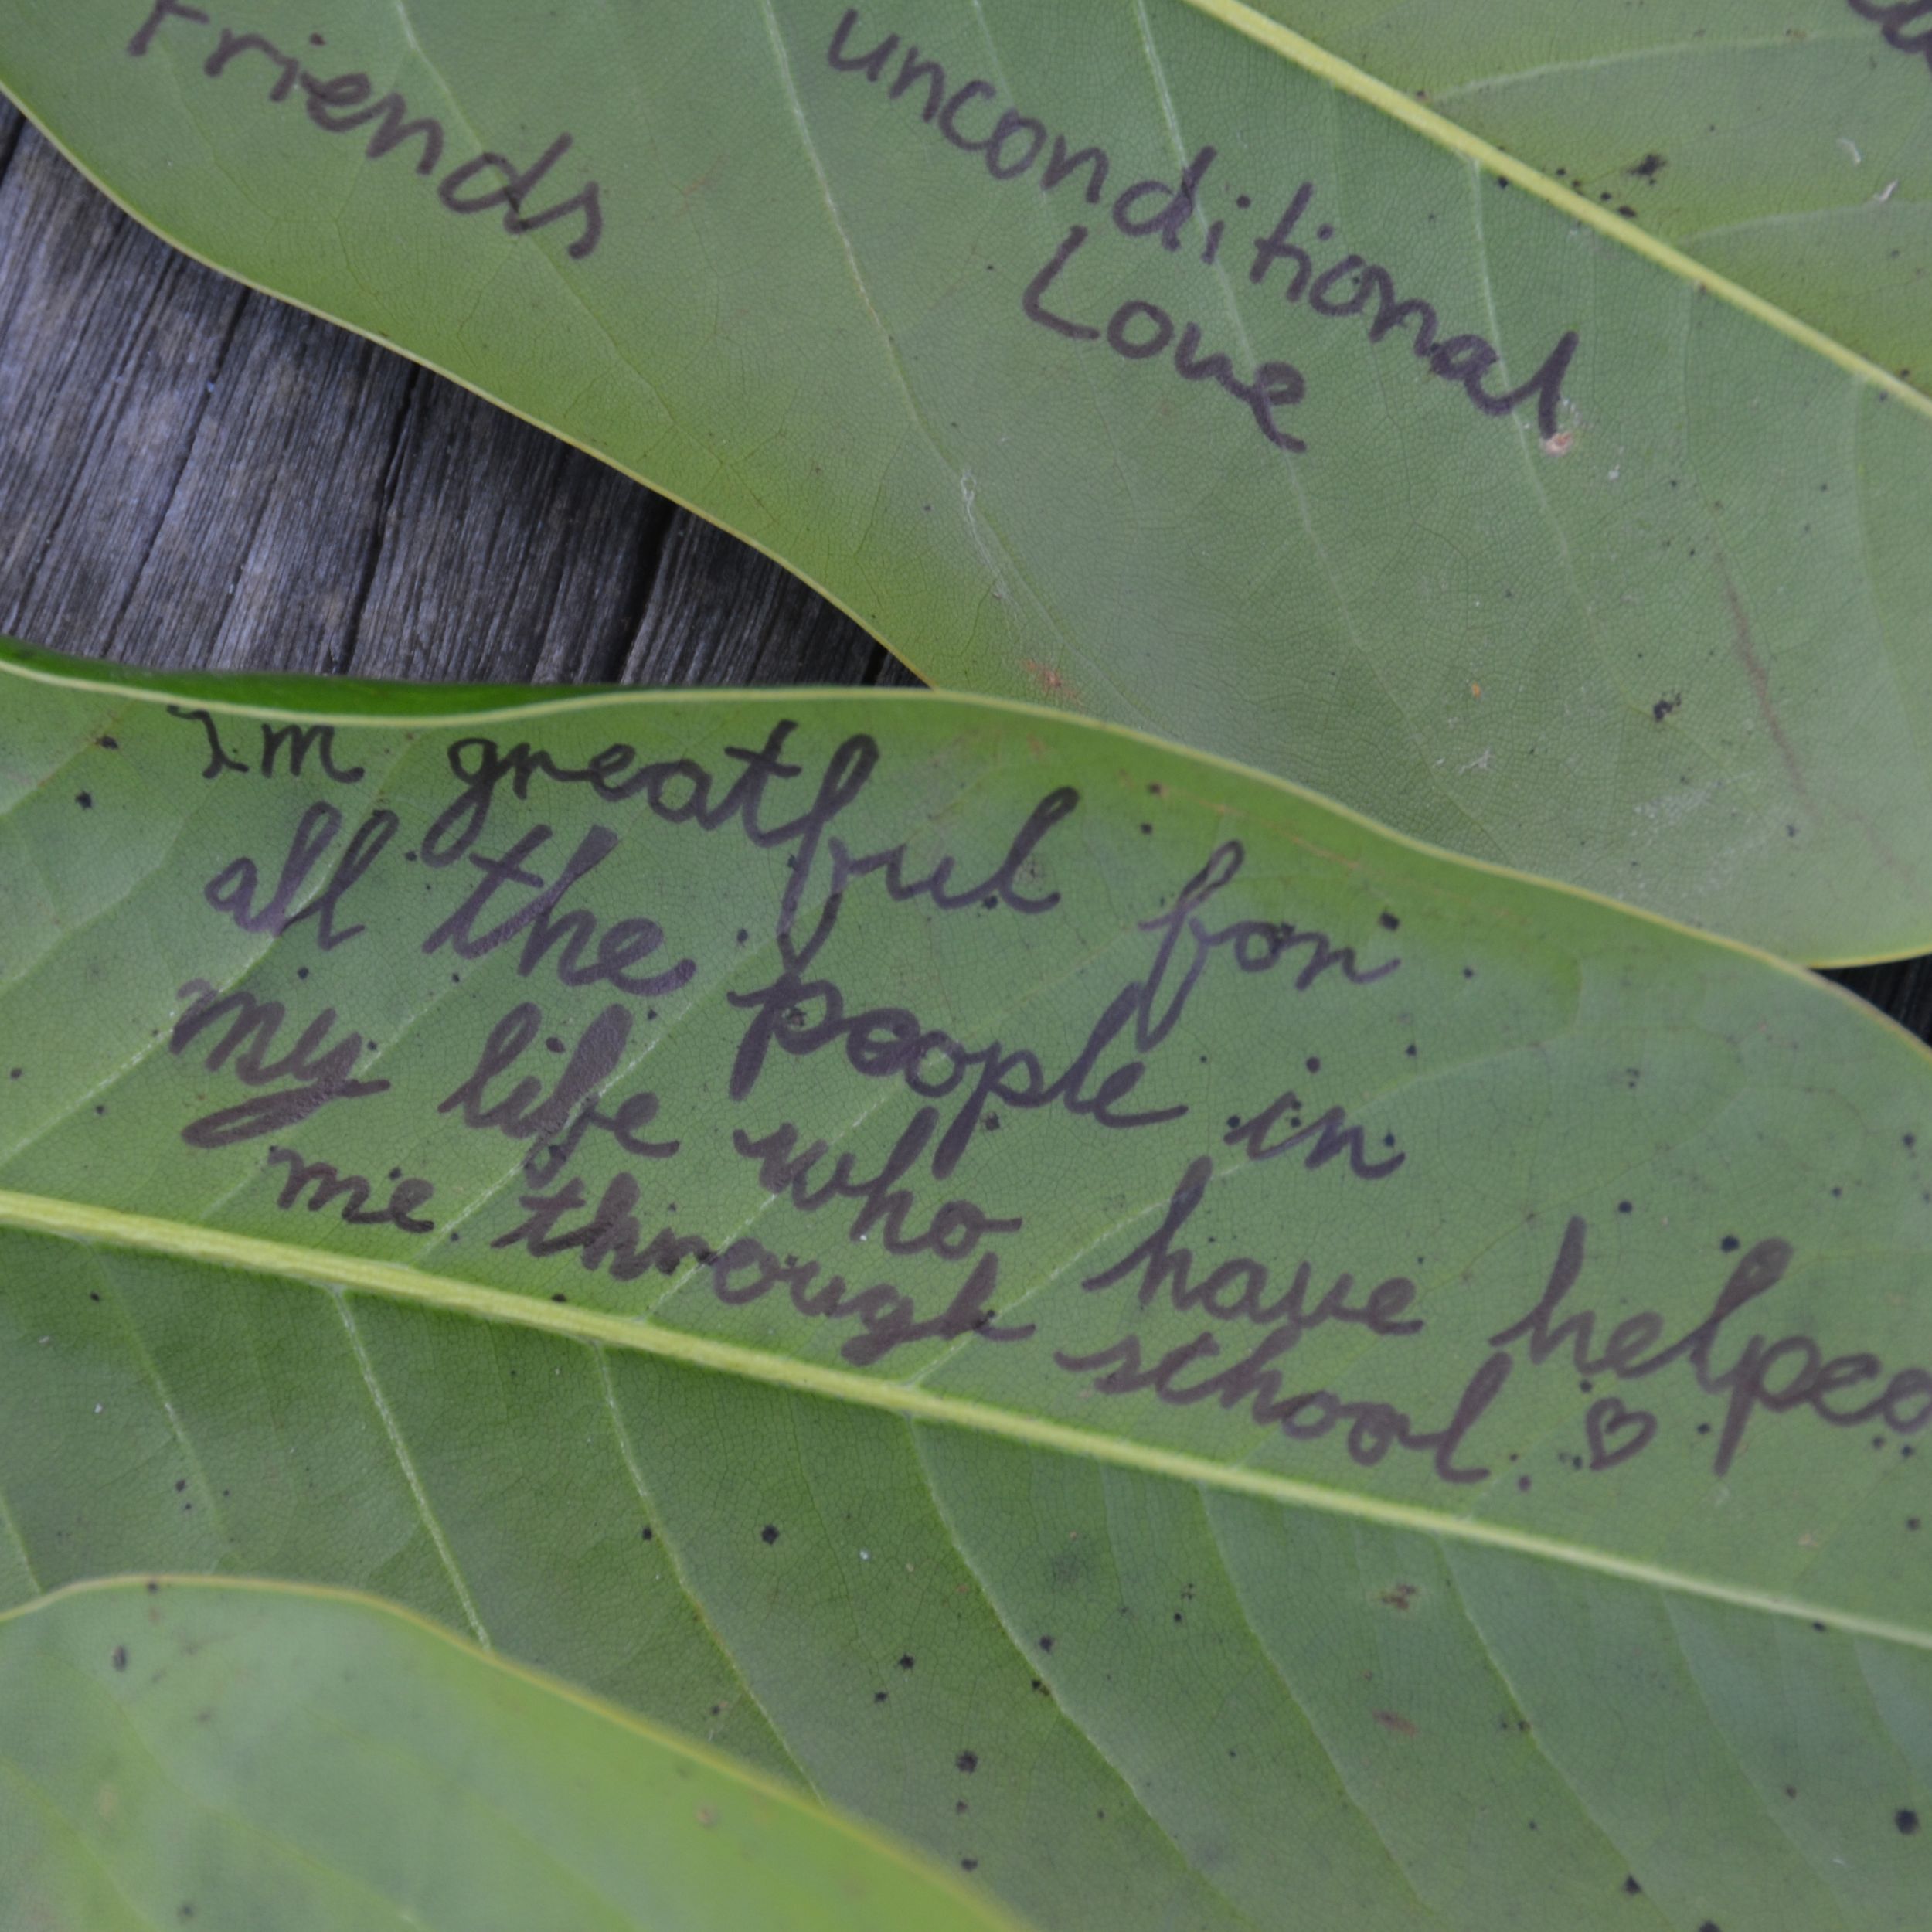 Friends
unconditional
Love
I'm greatful for
all the people in
my life who have helped
me through school. ♡